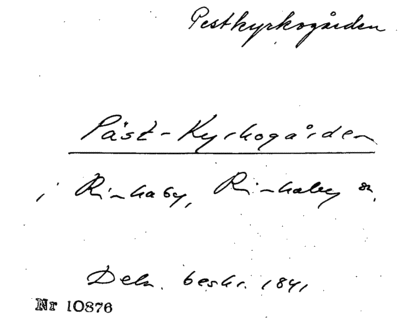 Pestkyrkogården
Päst-Kyrkogården
i Rinkaby, Rinkaby sn.
Dekn. beskr. 1841
Nr 10876